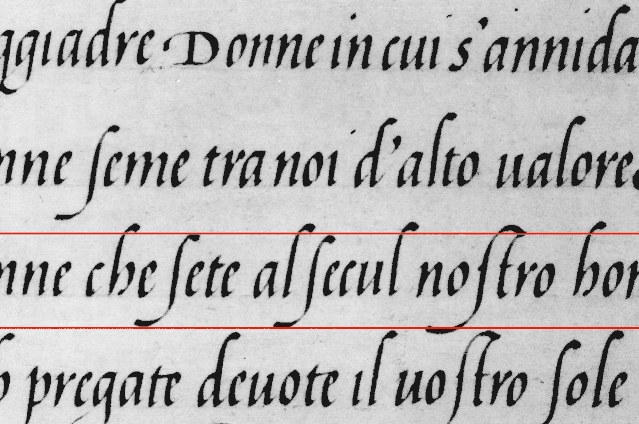 ggiadre Donne in cui s'annida
nne ſeme tra noi d'alto ualore
nne che ſete al ſecul noſtro hon
pregate deuote il uoſtro ſole